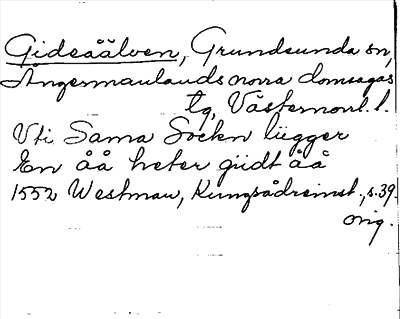 Gideåälven, Grundsunda sn,
Ångermanlands norra domsagas
tg, Västernorrl. l.
Vti Sama Sockn liigger
En åå heter giidt åå
1552 Westman, Kungsådreinst., s. 39.
orig.